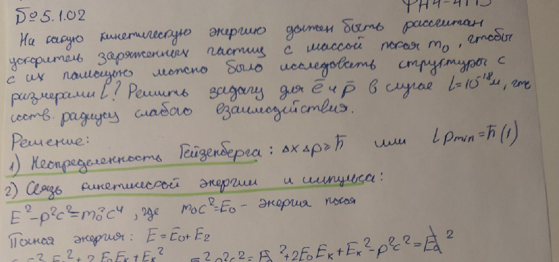 До 5.1.02
На какую кинетическую энергию должен быть рассчитан
ускоритель заряженных частиц с массой покоя m₀, чтобы
с их помощью можно было исследовать структуры с
размерами l? Решить задачу для e̅ и p̅ в случае l=10⁻¹⁸м, что
соотв. радиусу слабого взаимодействия.
Решение:
1) Неопределенность Гейзенберга: ΔxΔp≥ħ или l pmin=ħ (1)
2) Связь кинетической энергии и импульса:
E²-p²c²=m₀²c⁴, где m₀c²=E₀ - энергия покоя
Полная энергия: E=E₀+E₂
+2E₀Eк+Eк² p²c²= +2E₀Eк+Eк²-p²c²=E₀²